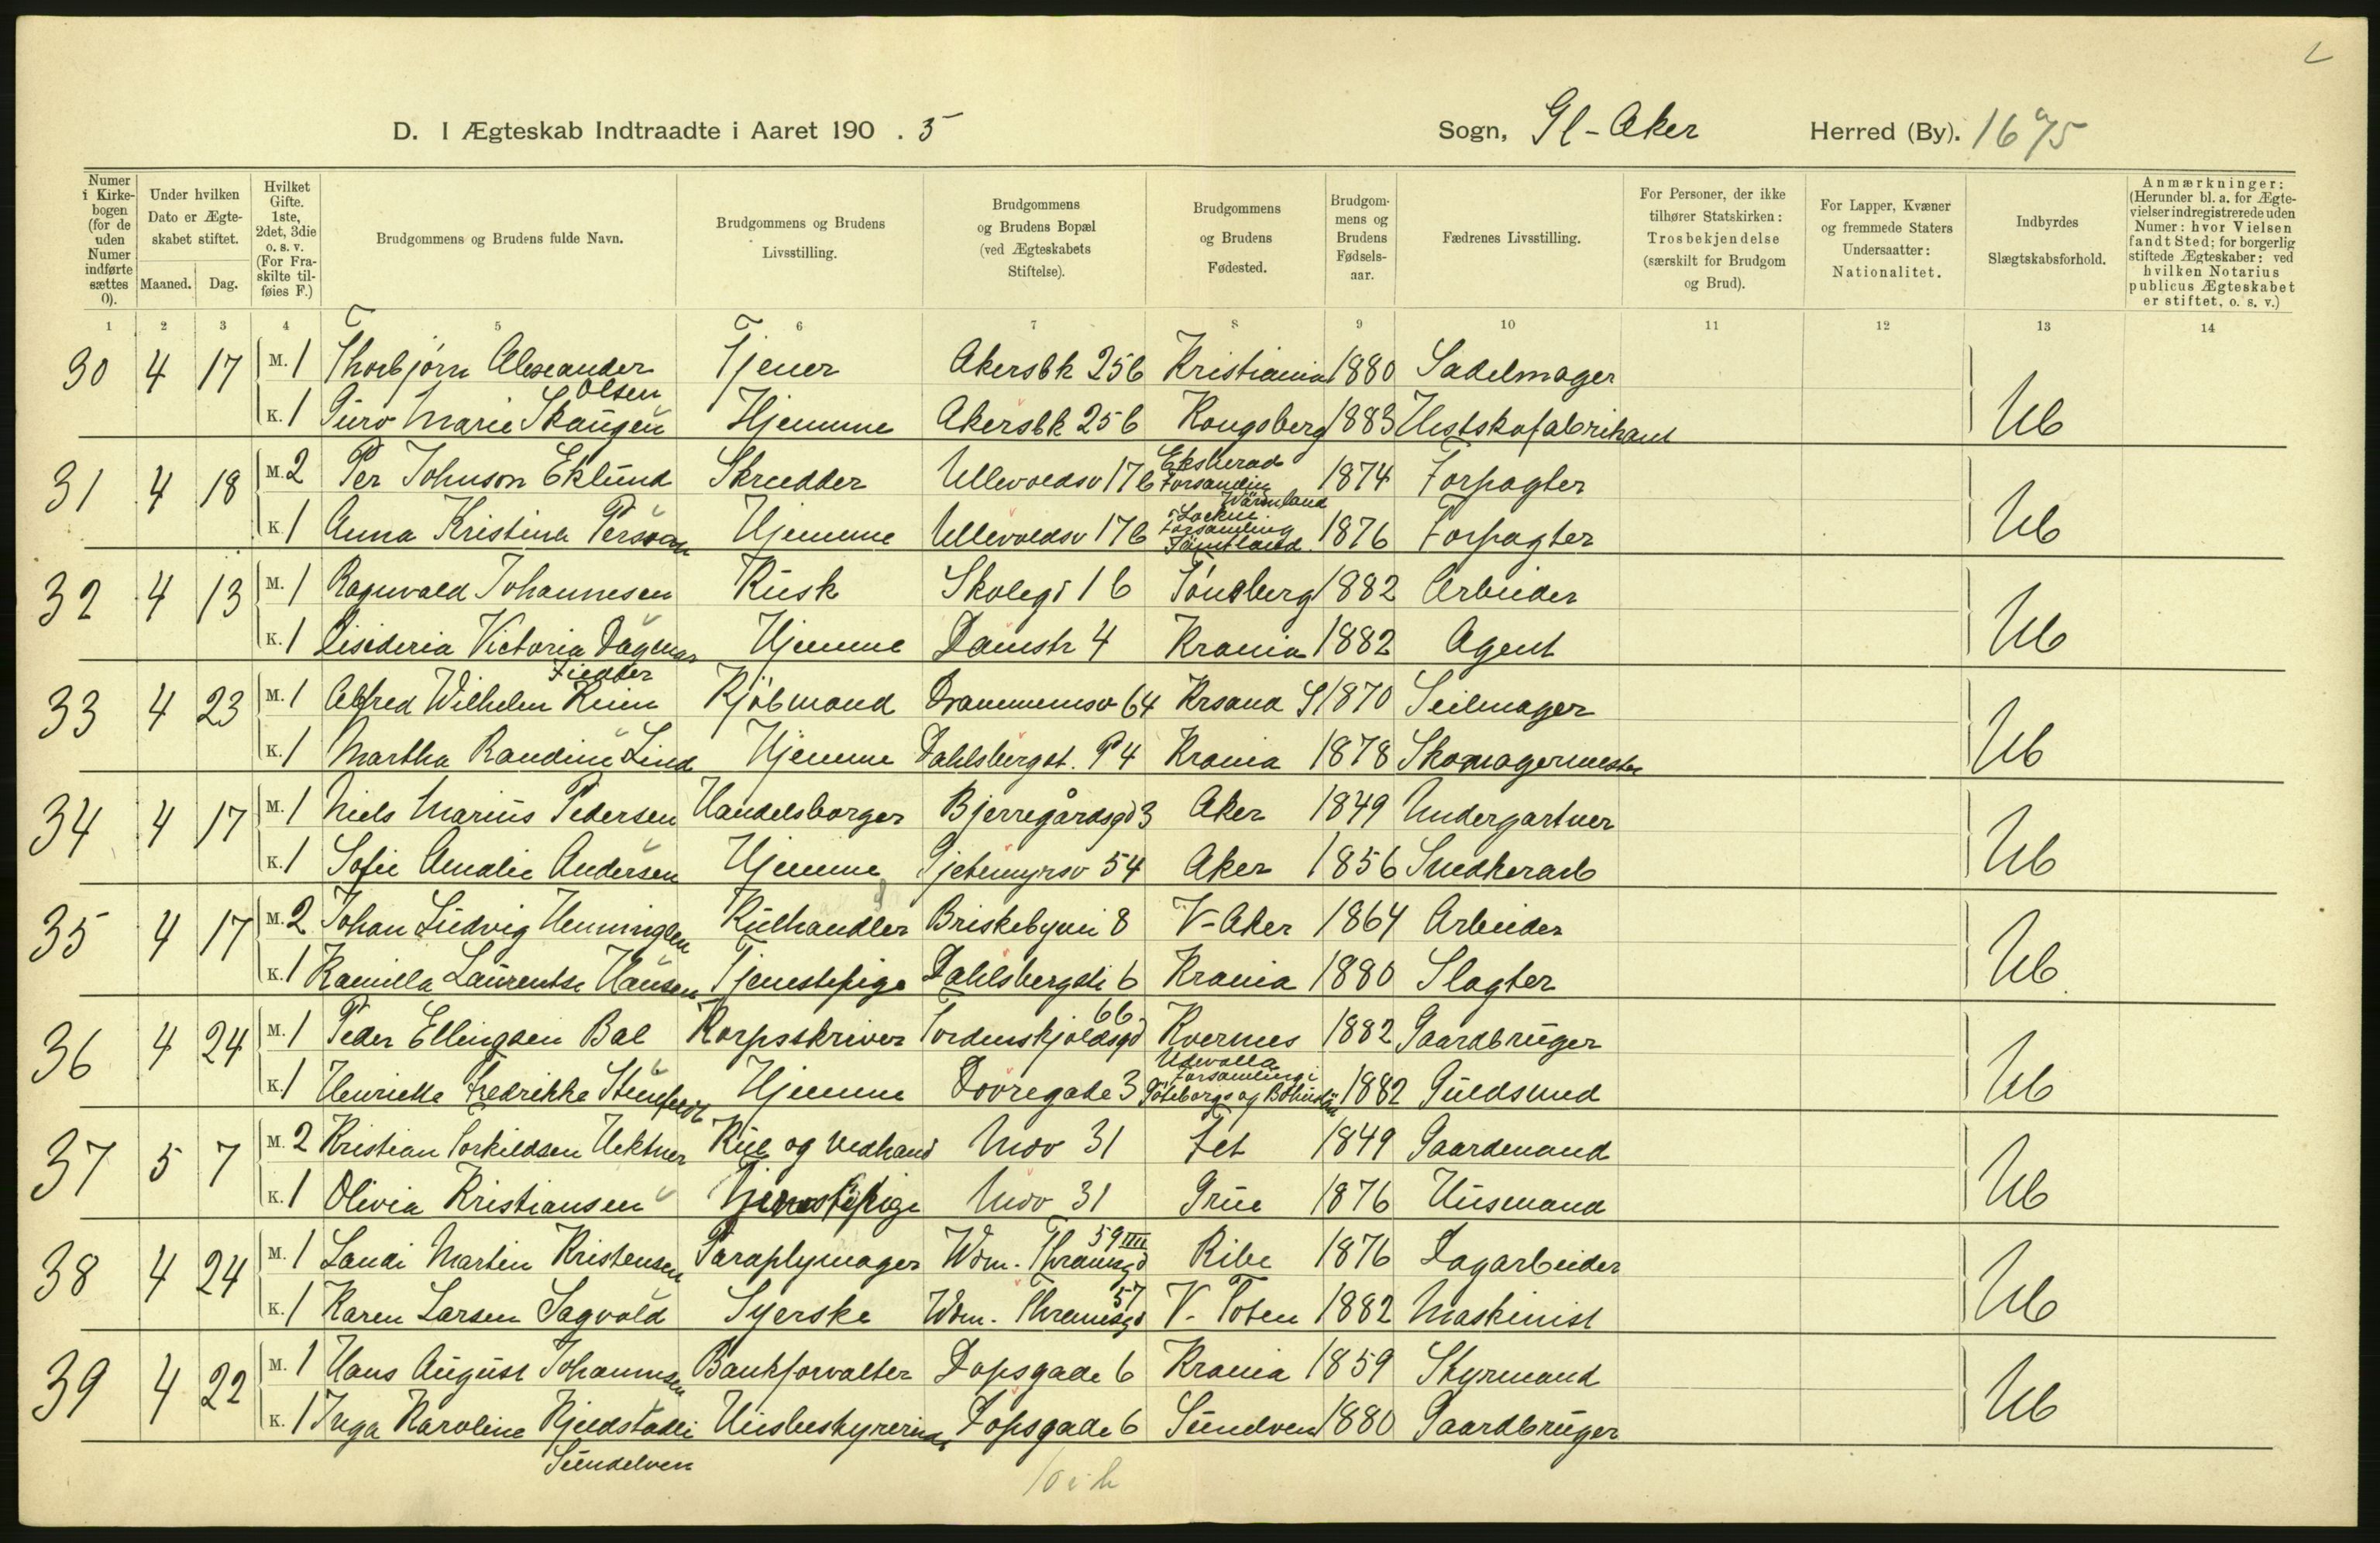 D. I Ægteskab Indtraadte i Aaret 190 . 5 Sogn, Gl-Aker Herred (By).
Numer i Kirkebogen (for de uden Numer indførte sættes 0). Under hvilken Dato er Ægteskabet stiftet. Maaned. Dag. Hvilket Gifte. 1ste, 2det, 3die o. s. v. (For Fraskilte tilføies F.) Brudgommens og Brudens fulde Navn. Brudgommens og Brudens Livsstilling. Brudgommens og Brudens Bopæl (ved Ægteskabets Stiftelse). Brudgommens og Brudens Fødested. Brudgommens og Brudens Fødselsaar. Fædrenes Livsstilling. For Personer, der ikke tilhører Statskirken: Trosbekjendelse (særskilt for Brudgom og Brud). For Lapper, Kvæner og fremmede Staters Undersaatter: Nationalitet. Indbyrdes Slægtskabsforhold. Anmærkninger: (Herunder bl. a. for Ægtevielser indregistrerede uden Numer: hvor Vielsen fandt Sted; for borgerlig stiftede Ægteskaber: ved hvilken Notarius publicus Ægteskabet er stiftet, o. s. v.)
1 2 3 4 5 6 7 8 9 10 11 12 13 14
30 4 17 M. 1 Thorbjørn Alexander Olsen Tjener Akersbk 25b Kristiania 1880 Sadelmager
K. 1 Guro Marie Skaugen Hjemme Akersbk 25b Kongsberg 1883 Hestskofabrikant Ub
31 4 18 M. 2 Per Johnson Eklund Skrædder Ullevoldsv 17b Eksherad Forsamlin Wärmland 1874 Forpagter
K. 1 Anna Kristina Persson Hjemme Ullevoldsv 17b Lockne Forsamling Jämtland 1876 Forpagter Ub
32 4 13 M. 1 Ragnvald Johannesen Kusk Skolegd 1b Tønsberg 1882 Arbeider
K. 1 Disideria Victoria Dagmar Fiedler Hjemme Damstr 4 Krania 1882 Agent Ub
33 4 23 M. 1 Alfred Wilhelm Reim Kjøbmand Drammensv 64 Krsand S 1870 Seilmager
K. 1 Martha Randine Lind Hjemme Dahlsbergst. P 4 Krania 1878 Skomagermester Ub
34 4 17 M. 1 Niels Marius Pedersen Handelsborger Bjerregårdsgd 3 Aker 1849 Undergartner
K. 1 Sofie Amalie Andersen Hjemme Gjetemyrsv 54 Aker 1856 Snedkerarb Ub
35 4 17 M. 2 Johan Ludvig Henningsen Kulhandler Briskebyvei 8 V-Aker 1864 Arbeider
K. 1 Kamilla Laurentse Hansen Tjenestepige Dahlsbergsti 6 Krania 1880 Slagter Ub
36 4 24 M. 1 Peder Ellingsen Bal Korpsskriver Tordenskjoldsgd 66 Kvernes 1882 Gaardbruger
K. 1 Henriette Fredrikke Stenfeldt Hjemme Dovregade 3 Udevalla Forsamling i Göteborgs og Bohuslän 1882 Guldsmed Ub
37 5 7 M. 2 Kristian Torkildsen Hektner Kul og Vedhand Mov 31 Fet 1849 Gaardmand
K. 1 Olivia Kristiansen Tjenestepige Mov 31 Grue 1876 Husmand Ub
38 4 24 M. 1 Laudi Martin Kristensen Paraplymager Wm. Thranesgd 59 IIII Ribe 1876 Dagarbeider
K. 1 Karen Larsen Sagvold Syerske Wm. Thranesgd 57 V. Toten 1882 Maskinist Ub
39 4 22 M. 1 Hans August Johannesen Bankforvalter Dopsgade 6 Krania 1859 Styrmand
K. 1 Inga Karoline Kjelstadli Sundelven Husbestyrerinde Dopsgade 6 Sundven 1880 Gaardbruger Ub